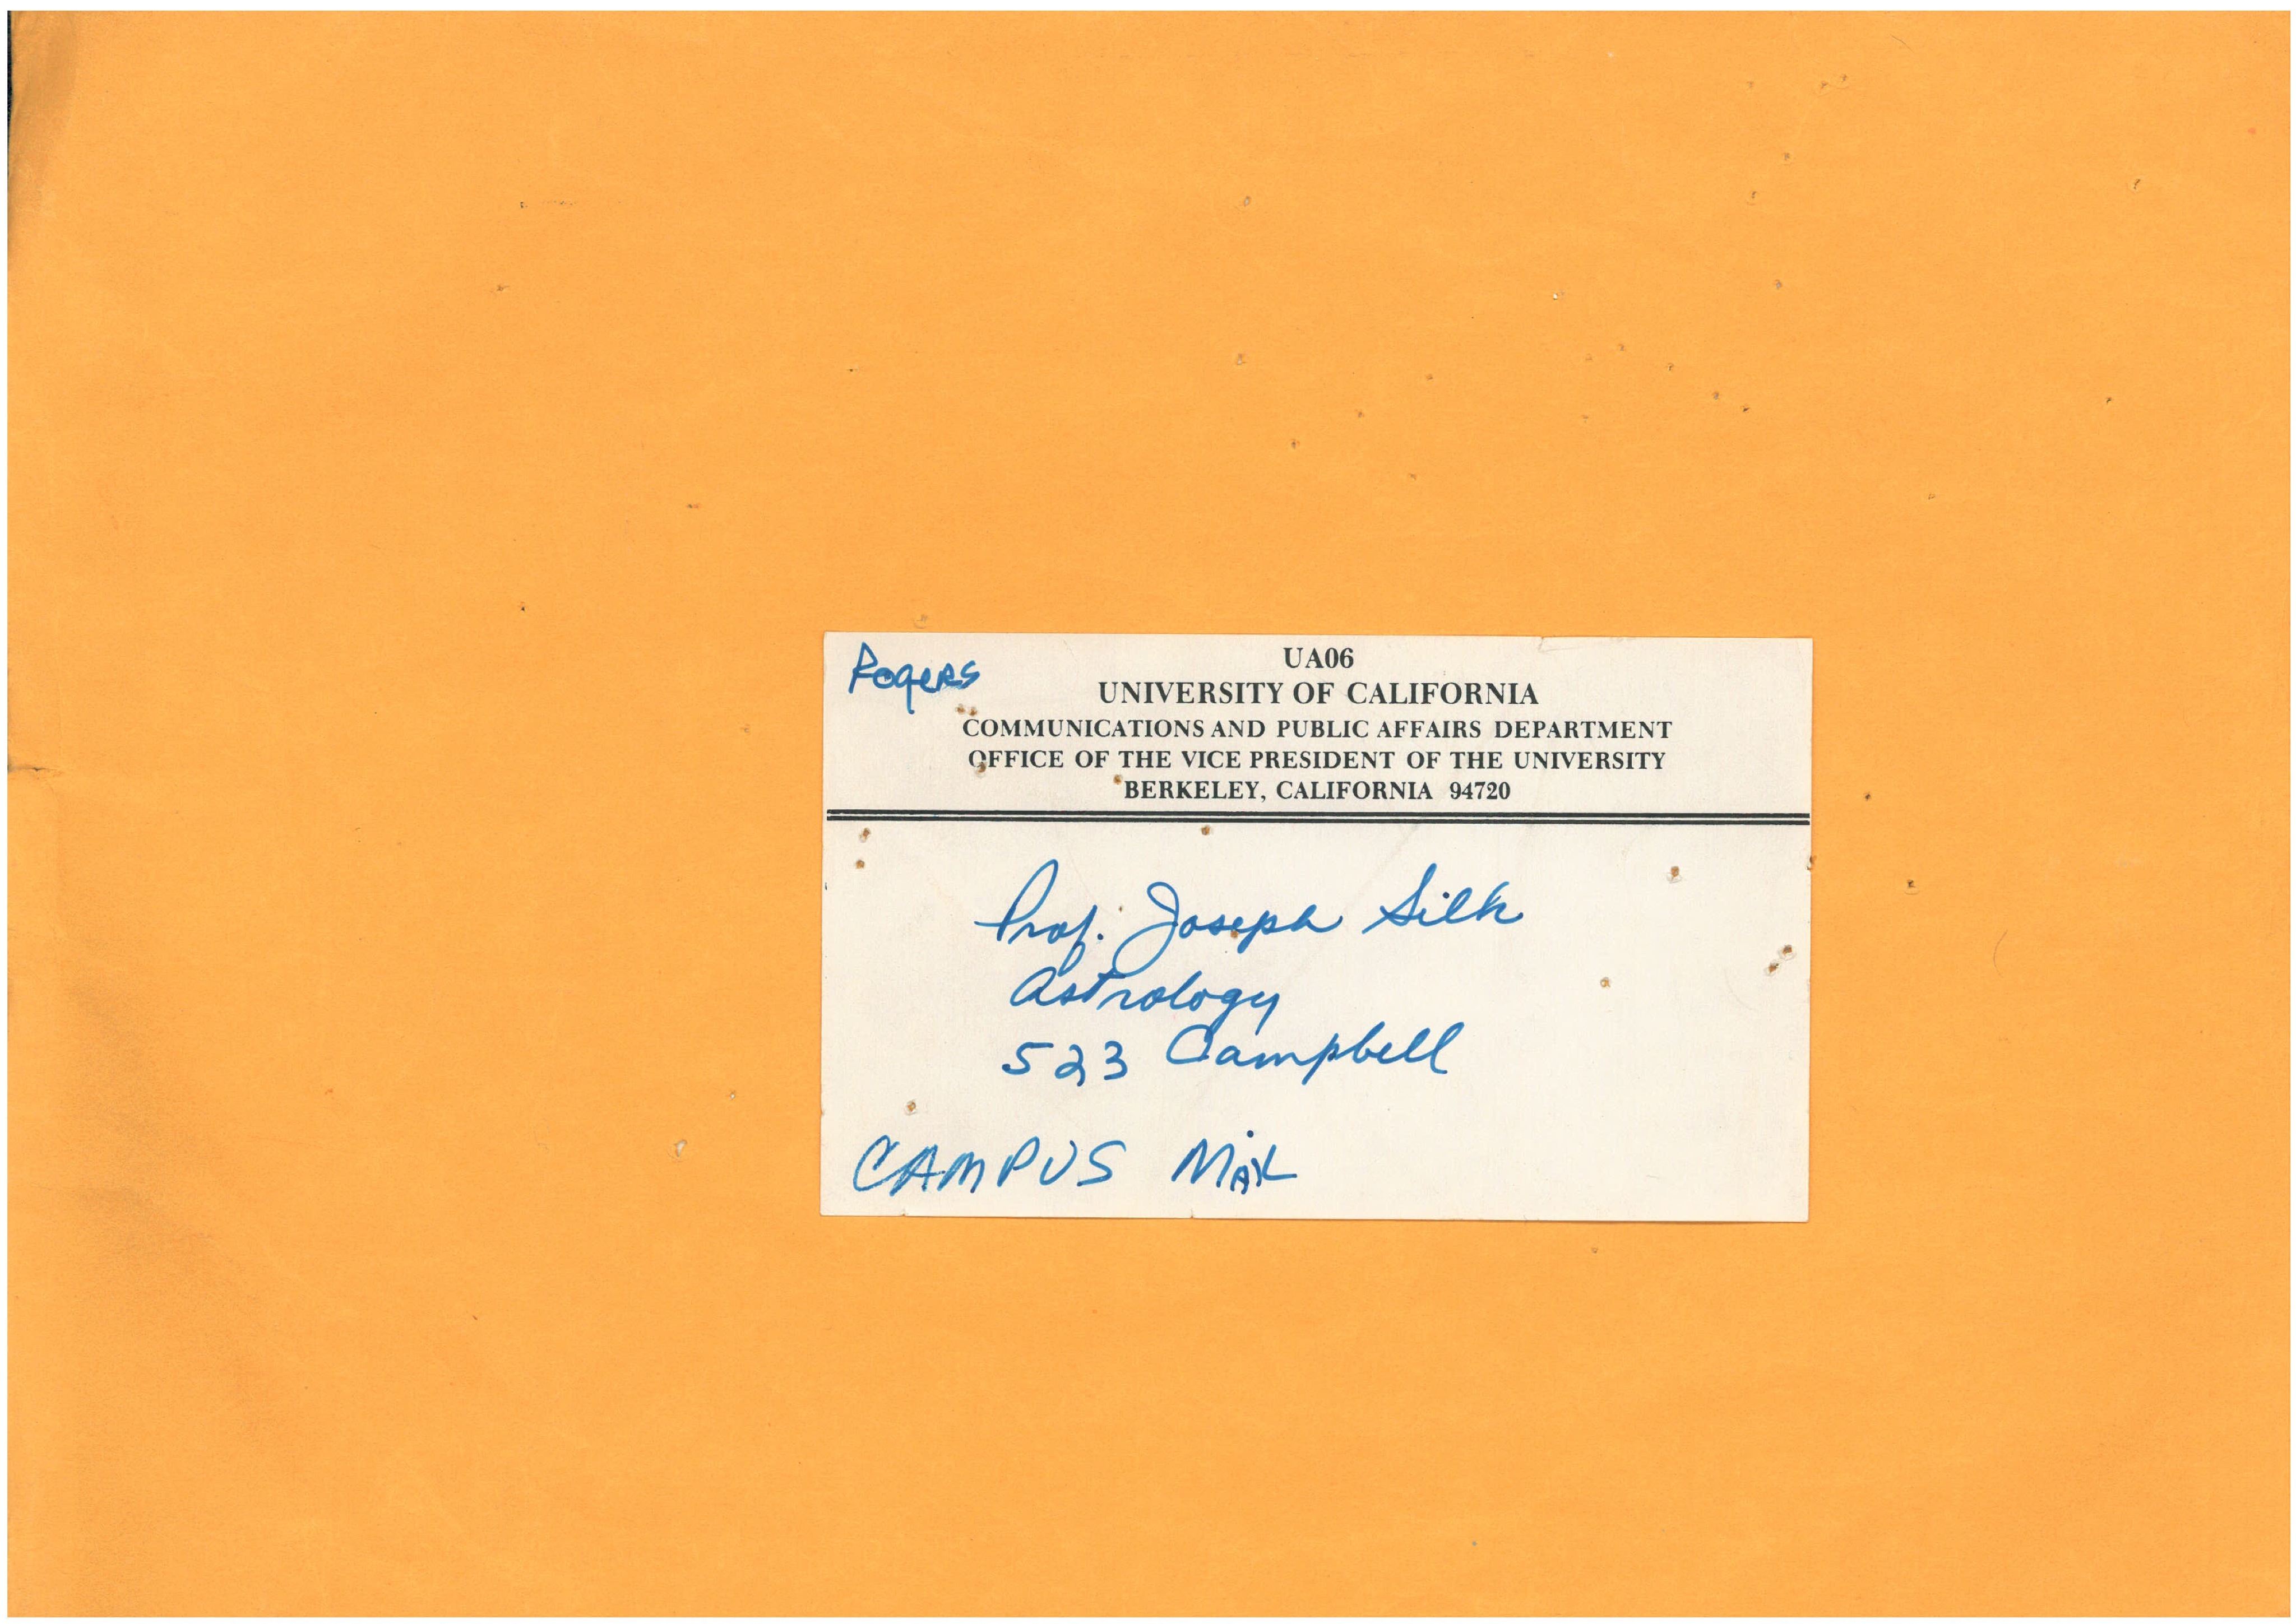 Rogers
UA06
UNIVERSITY OF CALIFORNIA
COMMUNICATIONS AND PUBLIC AFFAIRS DEPARTMENT
OFFICE OF THE VICE PRESIDENT OF THE UNIVERSITY
BERKELEY, CALIFORNIA 94720
Prof. Joseph Silk
Astrology
523 Campbell
CAMPUS MAiL